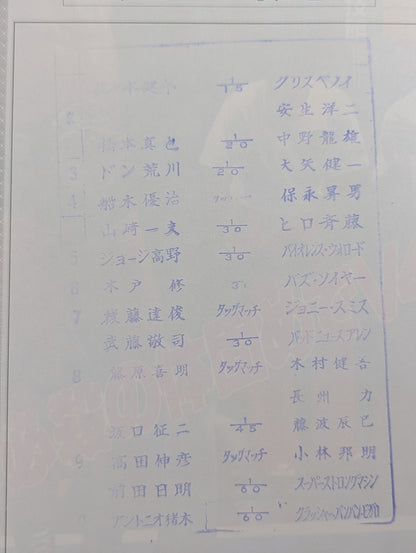 木健 1/15 クリスベノイ
2 安生洋二
橋本真也 1/20 中野龍雄
3 ドン荒川 1/20 大矢健一
4 船木優治 保永昇男
山崎一夫 1/30 ヒロ斉藤
5 ジョージ高野 1/30 バイオレンス・ウォロード
6 木戸 修 バズ・ソイヤー
7 後藤達俊 タッグマッチ ジョニー・スミス
武藤敬司 1/30 バッドニュースアレン
8 藤原喜明 タッグマッチ 木村健吾
長州 力
坂口征二 1/45 藤波辰巳
9 高田伸彦 タッグマッチ 小林邦明
前田日明 1/60 スーパーストロングマシン
アントニオ猪木 1/60 クラッシャーバンバンビガロ